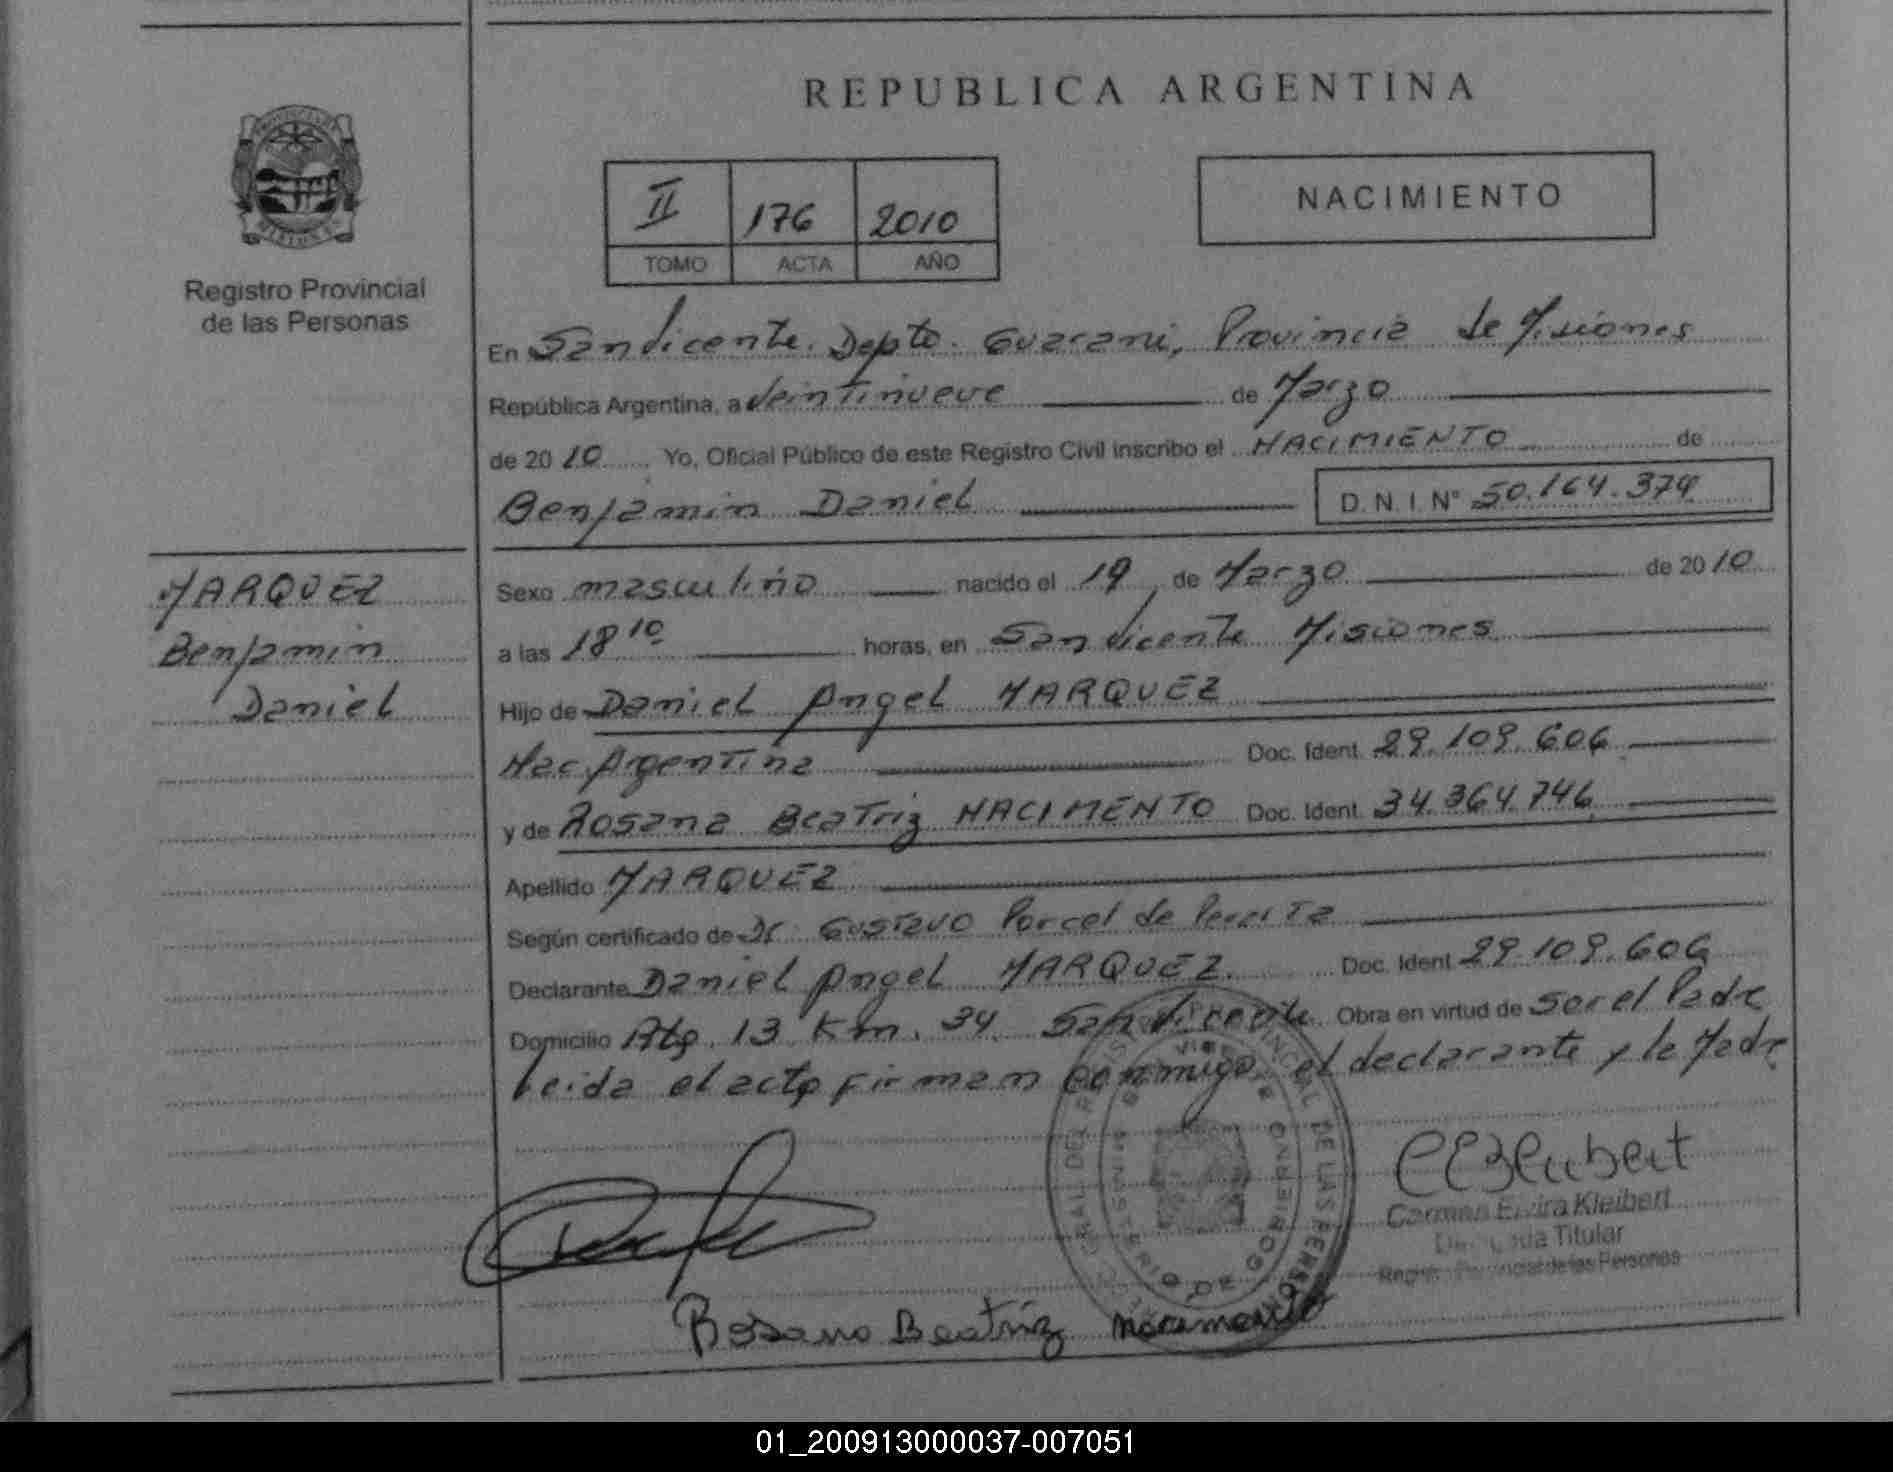 REPUBLICA ARGENTINA
PROVINCIA DE MISIONES
Registro Provincial
de las Personas
II 176 2010
TOMO ACTA AÑO
NACIMIENTO
En San Vicente. Depto. Guarani, Provincia de Misiones
República Argentina, a Veintinueve de Marzo
de 2010 Yo, Oficial Público de este Registro Civil inscribo el NACIMIENTO de
Benjamin Daniel D.N.I. N° 50.164.374
MARQUEZ
Benjamin
Daniel
Sexo masculino nacido el 19 de Marzo de 2010
a las 18 10 horas, en San Vicente Misiones
Hijo de Daniel Angel MARQUEZ
Nac. Argentina Doc. Ident. 29.109.606
y de Rosana Beatriz NACIMENTO Doc. Ident. 34.364.746
Apellido MARQUEZ
Según certificado de Dr. Gustavo Porcel de Peralta
Declarante Daniel Angel MARQUEZ. Doc. Ident 29.109.606
Domicilio Atp. 13 Km. 34 San Vicente Obra en virtud de Ser el Padre
Leida el acta firman conmigo el declarante y la Madre
CEKleibert
Carmen Elvira Kleibert
Titular
Registro Provincial de las Personas
Rosana Beatriz Nacimento
01_200913000037-007051